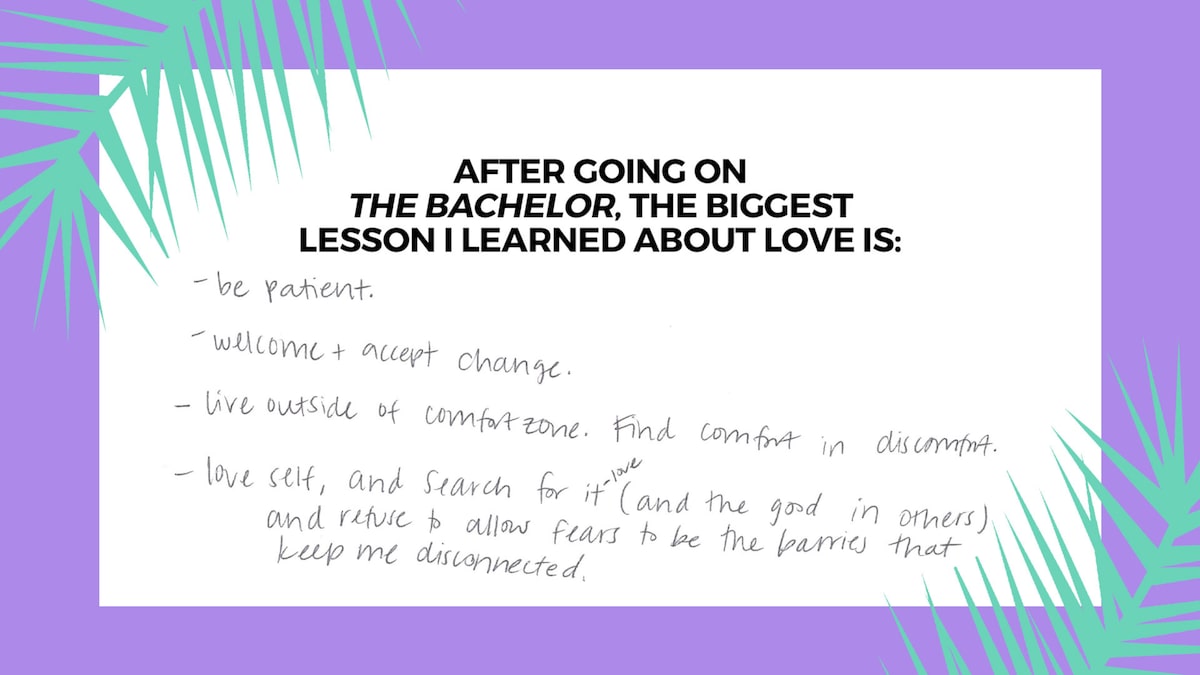 AFTER GOING ON
THE BACHELOR, THE BIGGEST
LESSON I LEARNED ABOUT LOVE IS:
- be patient.
- welcome + accept change.
- live outside of comfort zone. Find comfort in discomfort.
- love self, and search for it -love (and the good in others)
and refuse to allow fears to be the barries that
keep me disconnected.